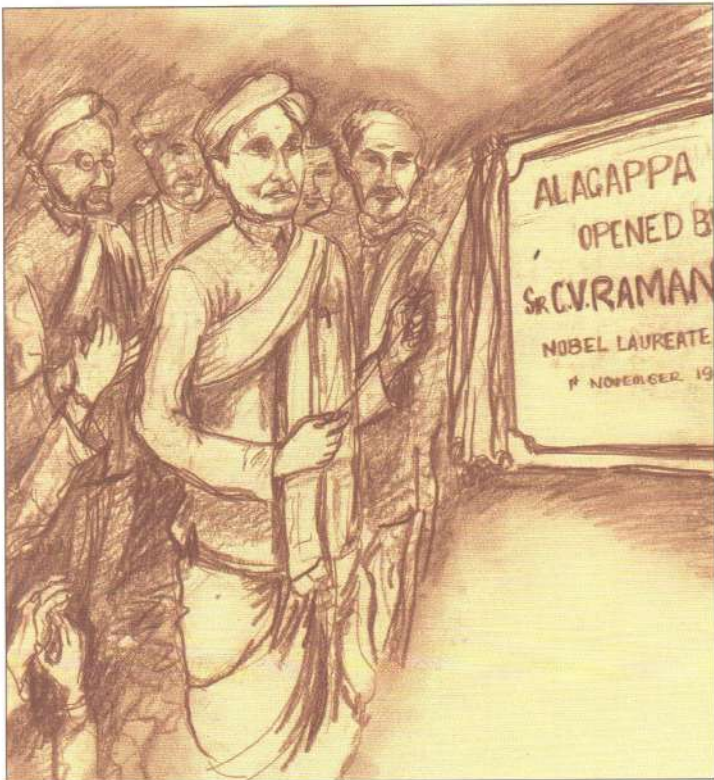 ALAGAPPA
OPENED B
SIR C.V. RAMAN
NOBEL LAUREATE
1st NOVEMBER 19